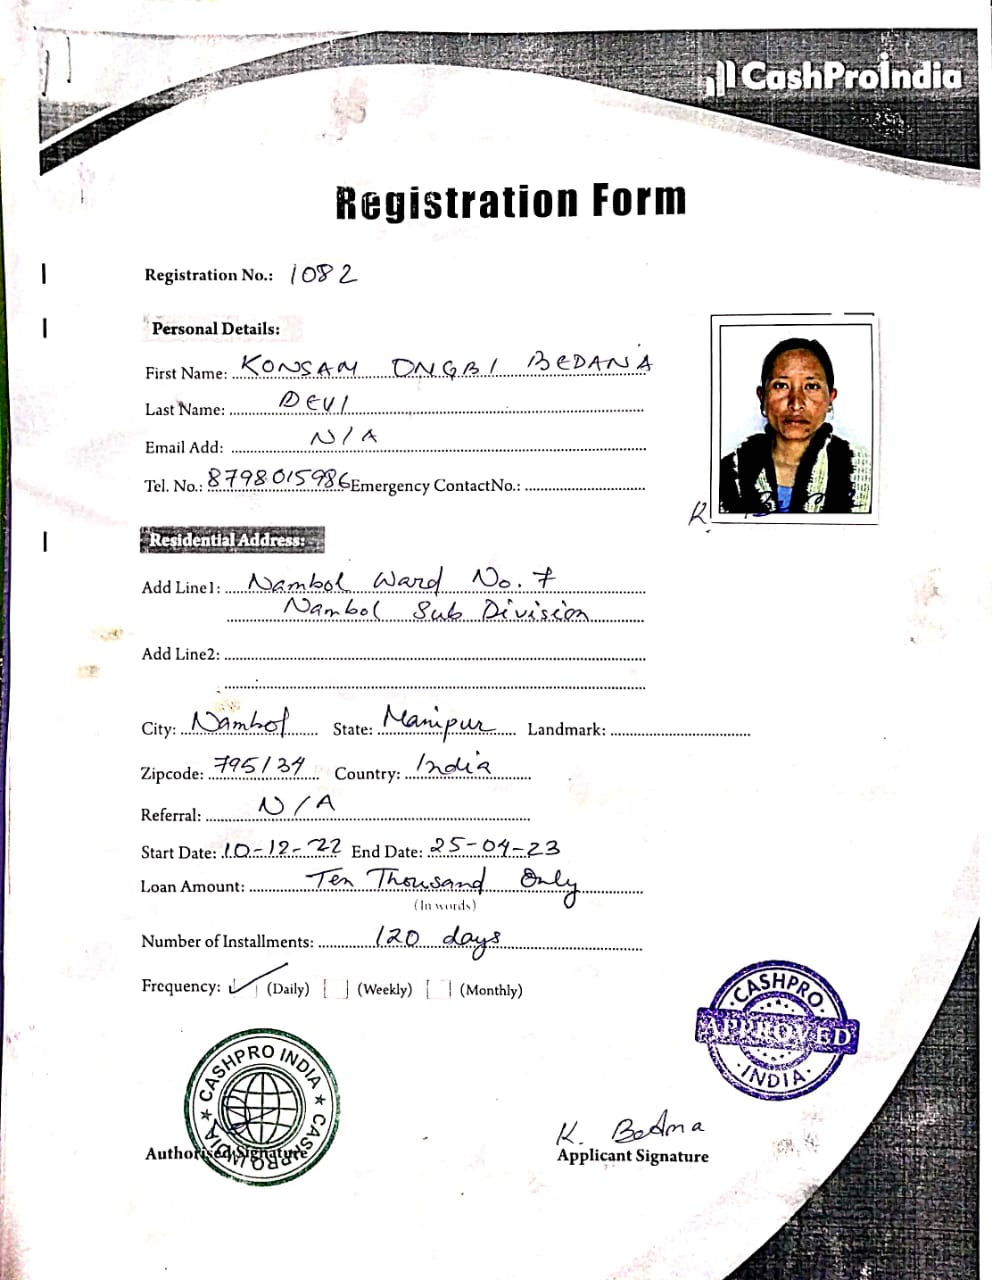 CashProIndia
Registration Form
Registration No.: 1082
Personal Details:
First Name: KONSAM ONGBI BEDANA
Last Name: DEVI
Email Add: N/A
Tel. No.: 8798015986 Emergency ContactNo.:
K.
Residential Address:
Add Line1: Nambol Ward No. 7
Nambol Sub Division
Add Line2:
City: Nambol State: Manipur Landmark:
Zipcode: 795134 Country: India
Referral: N/A
Start Date: 10-12-22 End Date: 25-04-23
Loan Amount: Ten Thousand Only
(In words)
Number of Installments: 120 days
Frequency: (Daily) (Weekly) (Monthly)
CASHPRO
APPROVED
INDIA
CASHPRO INDIA ★ CASHPRO INDIA ★
K. Bedana
Authorised Signature Applicant Signature